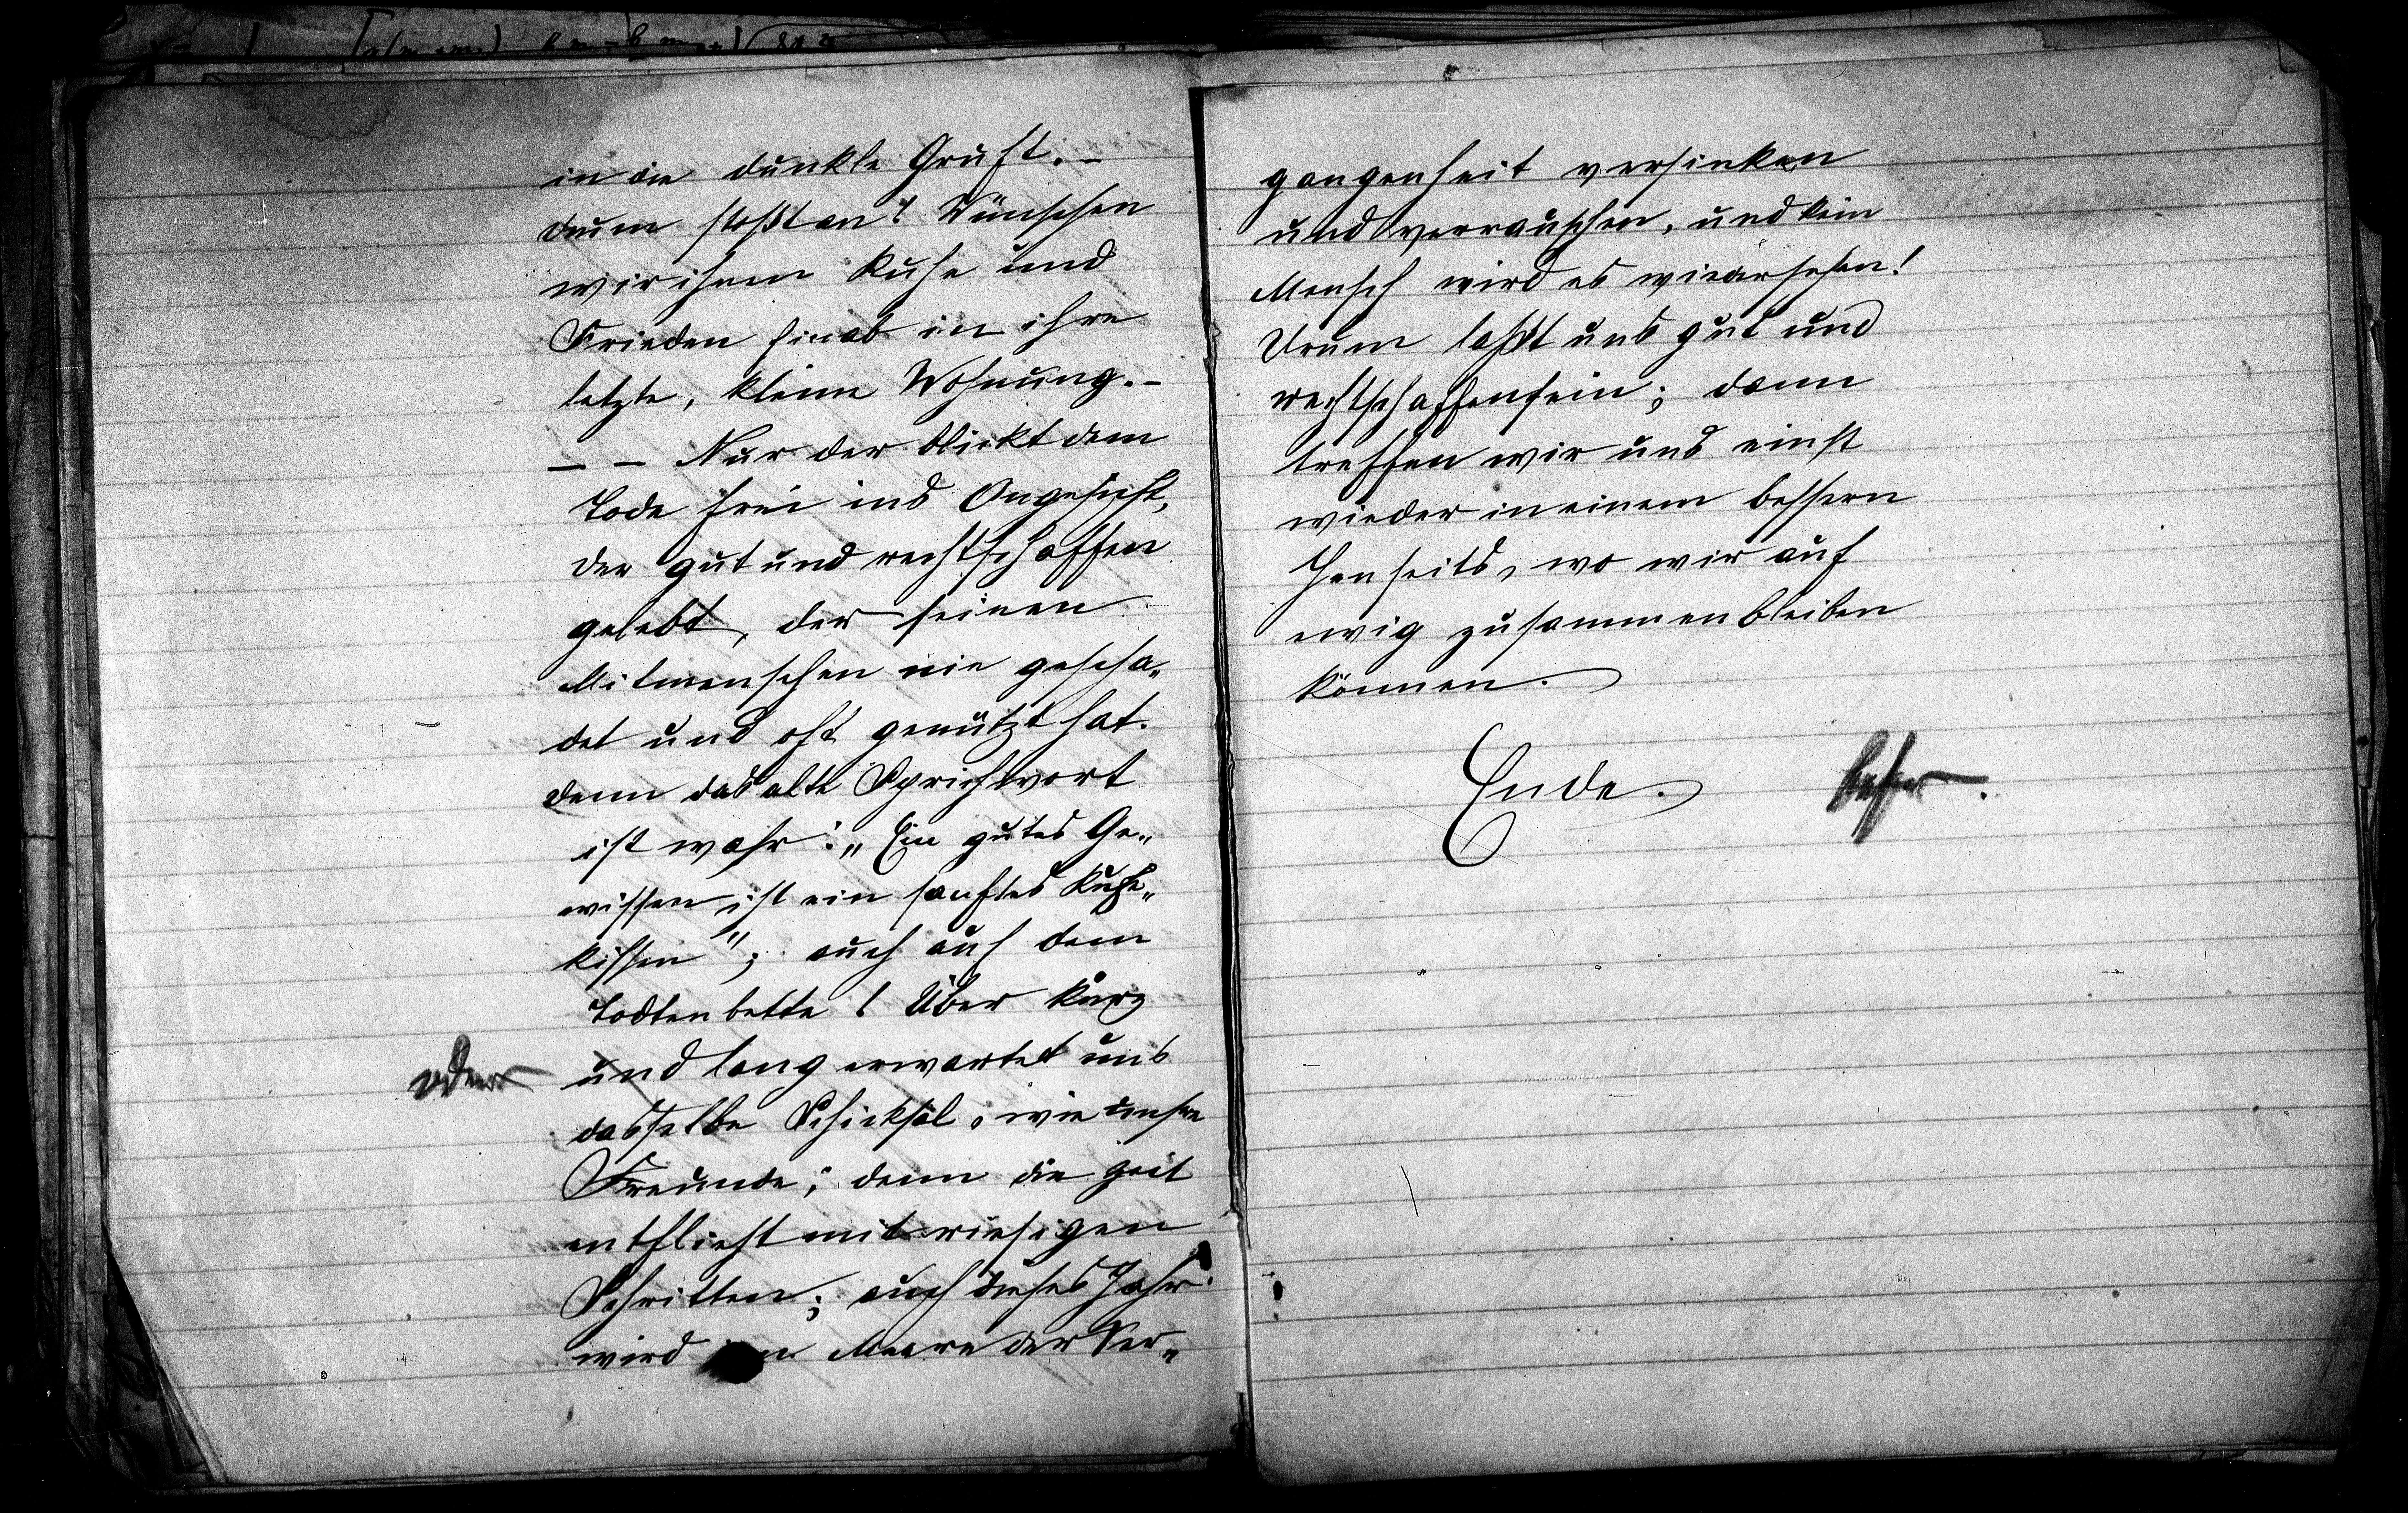 in die dunkle Gruft. –
drum stoßt an! Wünschen
wir ihnen Ruhe und
Frieden hinab in ihre
letzte, kleine Wohnung. –
– – Nur der blickt dem
Tode frei ins Angesicht,
der gut und rechtschaffen
gelebt, der seinen
Mitmenschen nie gescha„
det und oft genützt hat.
denn das alte Sprichwort
ist wahr: „Ein gutes Ge„
wissen ist ein sanftes Ruhe„
kissen"; auch auf dem
Todtenbette! Über kurz
oder und lang erwartet uns
dasselbe Schicksal, wie unsre
Freunde; denn die Zeit
entflieht mit riesigen
Schritten; auch dieses Jahr
wird im Meere der Ver„
gangenheit versinken
und verrauschen, und kein
Mensch wird es wiedersehen!
Drum laßt uns gut und
rechtschaffen sein; dann
treffen wir uns einst
wieder in einem bessern
Jenseits, wo wir auf
ewig zusammen bleiben
können.
Ende. besser.